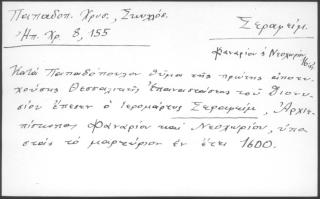 Παπαδοπ. Χρυσ., Σκυλλόσ.
Ἠπ. Χρ. 8, 155
Σεραφείμ.
φαναρίου & Νεοχωρίου
Κατὰ Παπαδόπουλον θῦμα τῆς πρώτης ἀποτυ-
χούσης Θεσσαλικῆς Ἐπαναστάσεως τοῦ Διονυ-
σίου ἔπεσεν ὁ ἱερομάρτυς Σεραφείμ, Ἀρχιε-
πίσκοπος Φαναρίου καὶ Νεοχωρίου, ὑπο-
στὰς τὸ μαρτύριον ἐν ἔτει 1600.